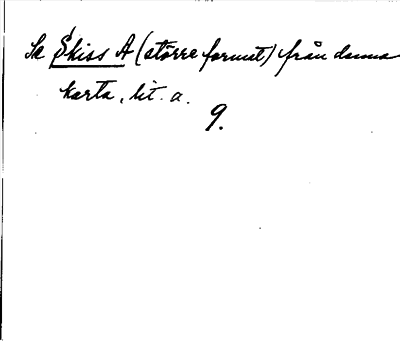 Se Skiss A (större format) från denna
karta, lit. a.
9.